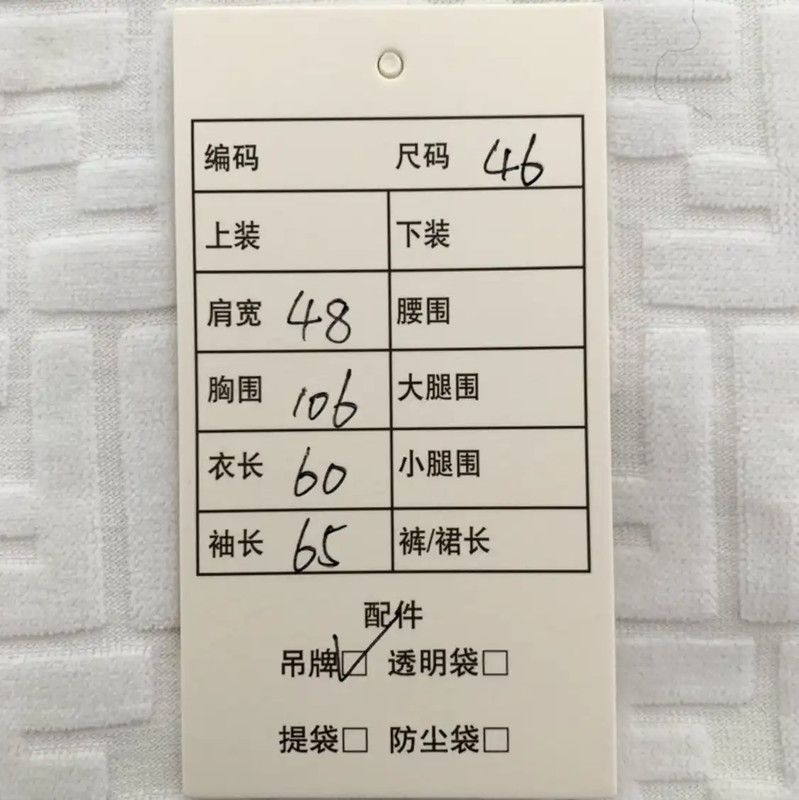 编码 尺码 46
上装 下装
肩宽 48 腰围
胸围 106 大腿围
衣长 60 小腿围
袖长 65 裤/裙长
配件
吊牌☑ 透明袋□
提袋□ 防尘袋□